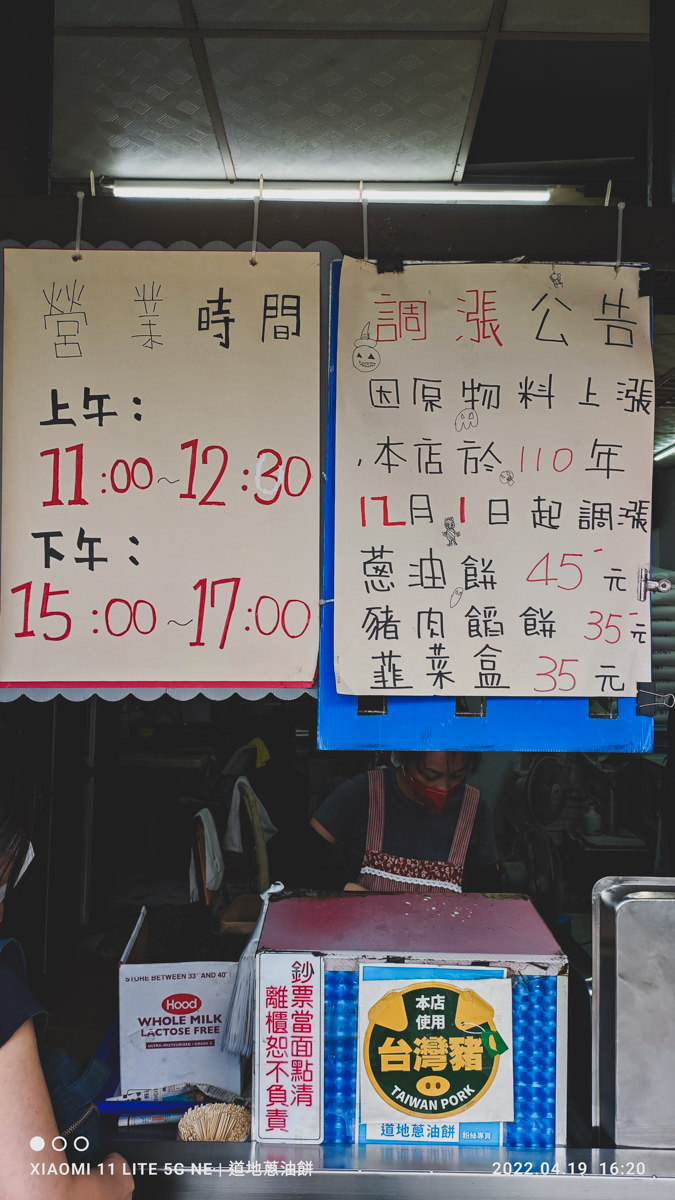 營業時間
上午：
11:00～12:30
下午：
15:00～17:00
調漲公告
因原物料上漲
,本店於110年
12月1日起調漲
蔥油餅 45元
豬肉餡餅 35元
韮菜盒 35元
STORE BETWEEN 33° AND 40°
Hood
WHOLE MILK
LACTOSE FREE
ULTRA-PASTEURIZED • GRADE A
鈔票當面點清
離櫃恕不負責
本店
使用
台灣豬
TAIWAN PORK
道地蔥油餅 粉絲專頁
XIAOMI 11 LITE 5G NE | 道地蔥油餅
2022.04.19 16:20